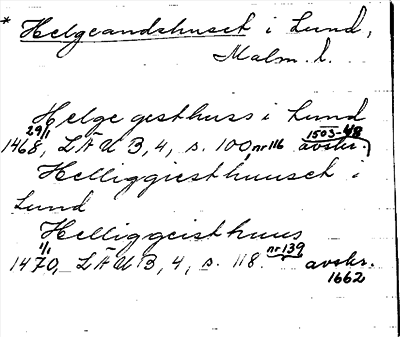 * Helgeandshuset i Lund,
Malm. l.
Helge gesthuss i Lund
29/1 1468, LÄUB, 4, s. 100, nr 116 avskr. 1503-48
Helliggiesthuuset i
Lund
Helliggeisthuus
1/1 1470, LÄUB, 4, s. 118. nr 139 avskr.
1662